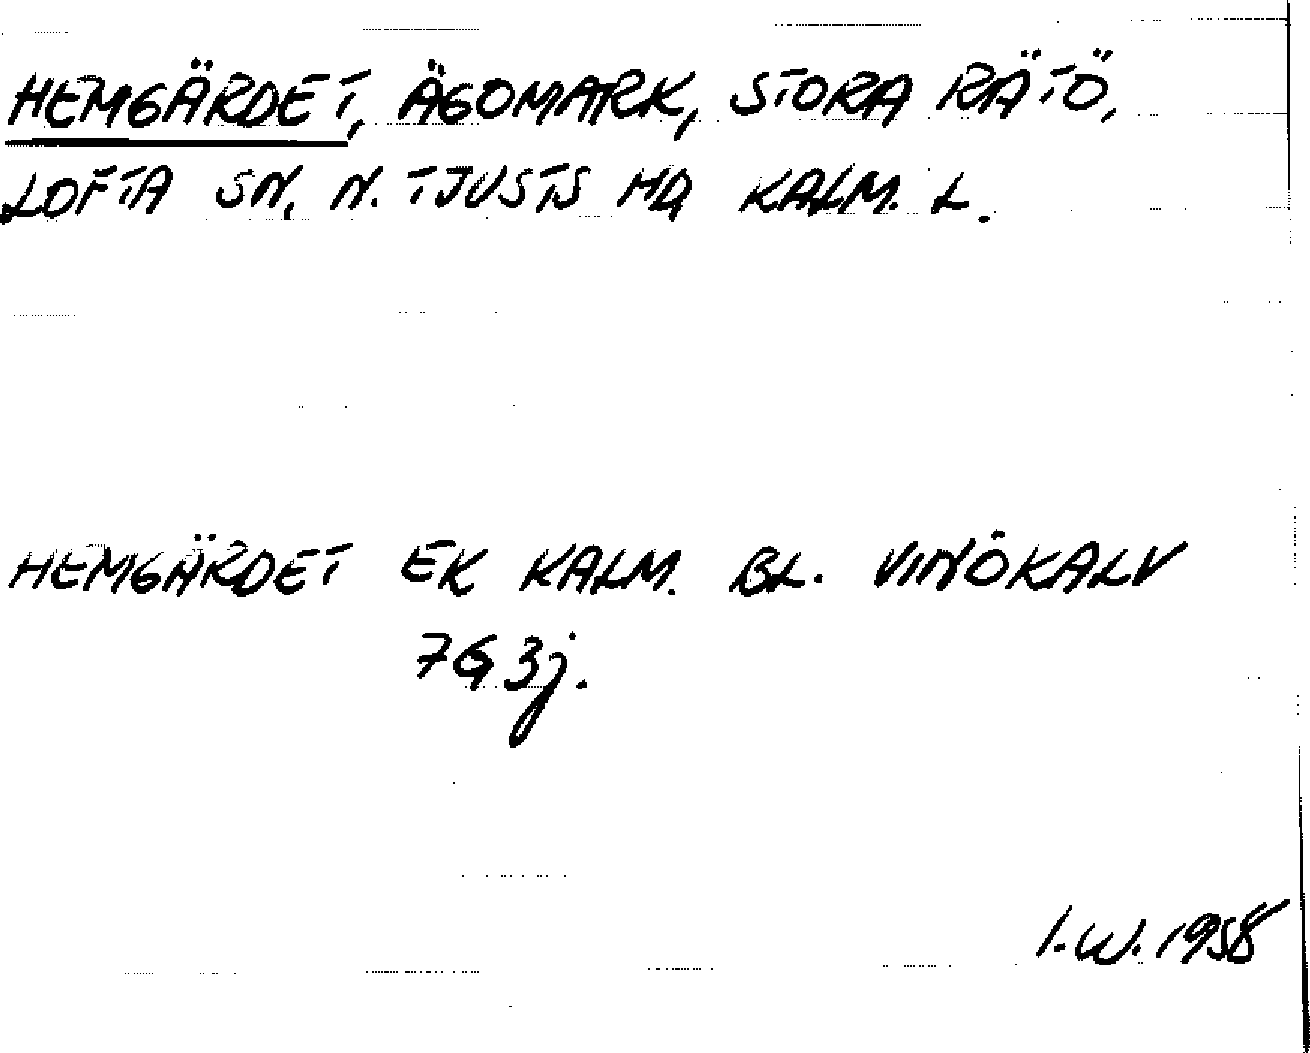 HEMGÄRDET, ÄGOMARK, STORA RÄTÖ,
LOFTA SN, N. TJUSTS HD, KALM. L.
HEMGÄRDET EK KALM. BL. VINÖKALV
7G 3j.
I.W. 1958